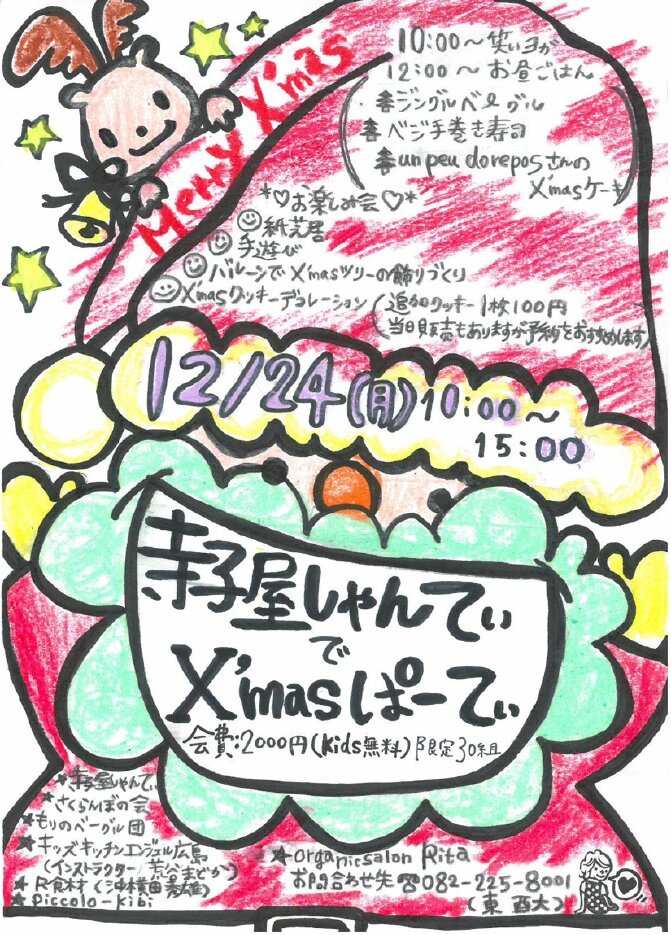 Merry X'mas
10:00～笑いヨガ
12:00～お昼ごはん
ジングルベーグル
ベジ手巻き寿司
un peu doreposさんの
X'masケーキ
*♡お楽しみ会♡*
紙芝居
手遊び
バルーンでX'masツリーの飾りづくり
X'masクッキーデコレーション
(追加クッキー1枚100円
当日販売もありますが予約をおすすめします)
12/24(月)10:00～
15:00
寺子屋しゃんてぃ
で
X'masぱーてぃ
会費:2000円(kids無料)限定30組
★寺子屋しゃんてぃ
★さくらんぼの会
★もりのベーグル団
★キッズキッチンエンジェル広島
(インストラクター まどか)
★R食材(沖横田)
★piccolo-kibi
★organicsalon Rita
お問合わせ先 ☎082-225-8001
(東 西大)